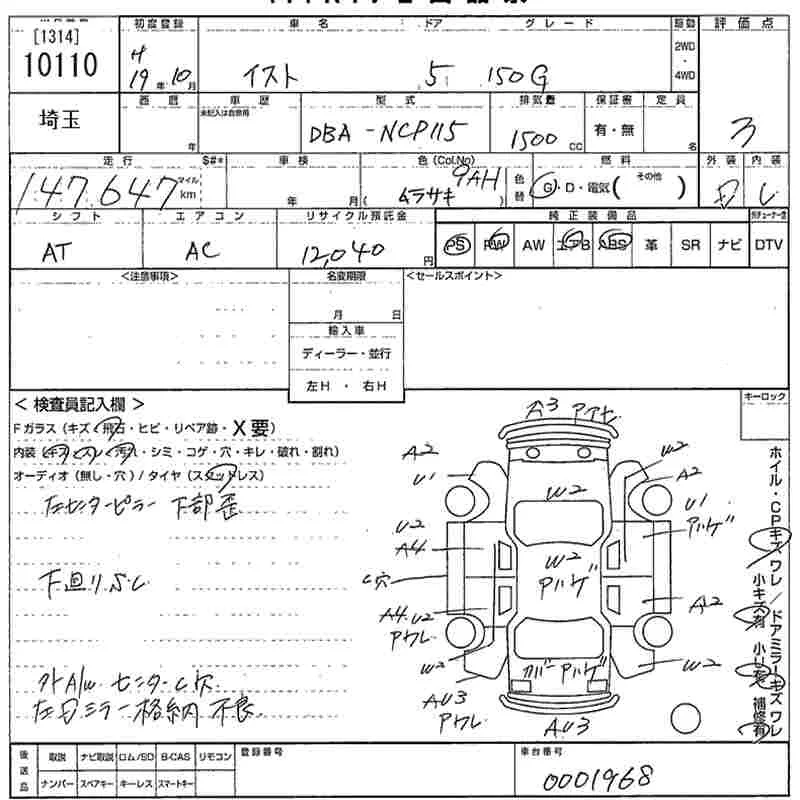 [1314]
10110
初度登録 車名 ドア グレード 駆動 評価点
H 19年10月 イスト 5 150G 2WD・4WD 3
埼玉
西暦 車歴 型式 排気量 保証書 定員
年 未記入は自家用 DBA-NCP115 1500cc 有・無 名
走行 S#* 車検 色(Col.No) 燃料 外装 内装
147,647 マイル km 年 月 ムラサキ 9AH 色替 G・D・電気(その他) D C
シフト エアコン リサイクル預託金 純正装備品
AT AC 12,040円 PS PW AW エアB ABS 革 SR ナビ DTV
<注意事項> 名変期限 <セールスポイント>
月 日
輸入車
ディーラー・並行
左H・右H
<検査員記入欄> キーロック
Fガラス(キズ・飛石・ヒビ・リペア跡・X要)
内装(キズ・スレ・汚れ・シミ・コゲ・穴・キレ・破れ・割れ)
オーディオ(無し・穴)/タイヤ(スタッドレス)
左センターピラー下部歪
下廻り.S.C
外A/w センターC穴
左ドミラー格納不良
A3 アワレ
A2 W2
U1 A2
W2 U1
U2 アハゲ
A4
W2
C穴 アハゲ
A4 U2 A2
アワレ
W2 カバーアハゲ W2
AU3
アワレ AU3
ホイル・CPキズワレ/ドアミラーキズワレ
小キズ有 小U有 補修有
後送品 取説 ナビ取説 ロム/SD B-CAS リモコン 登録番号 車台番号
ナンバー スペアキー キーレス スマートキー 0001968